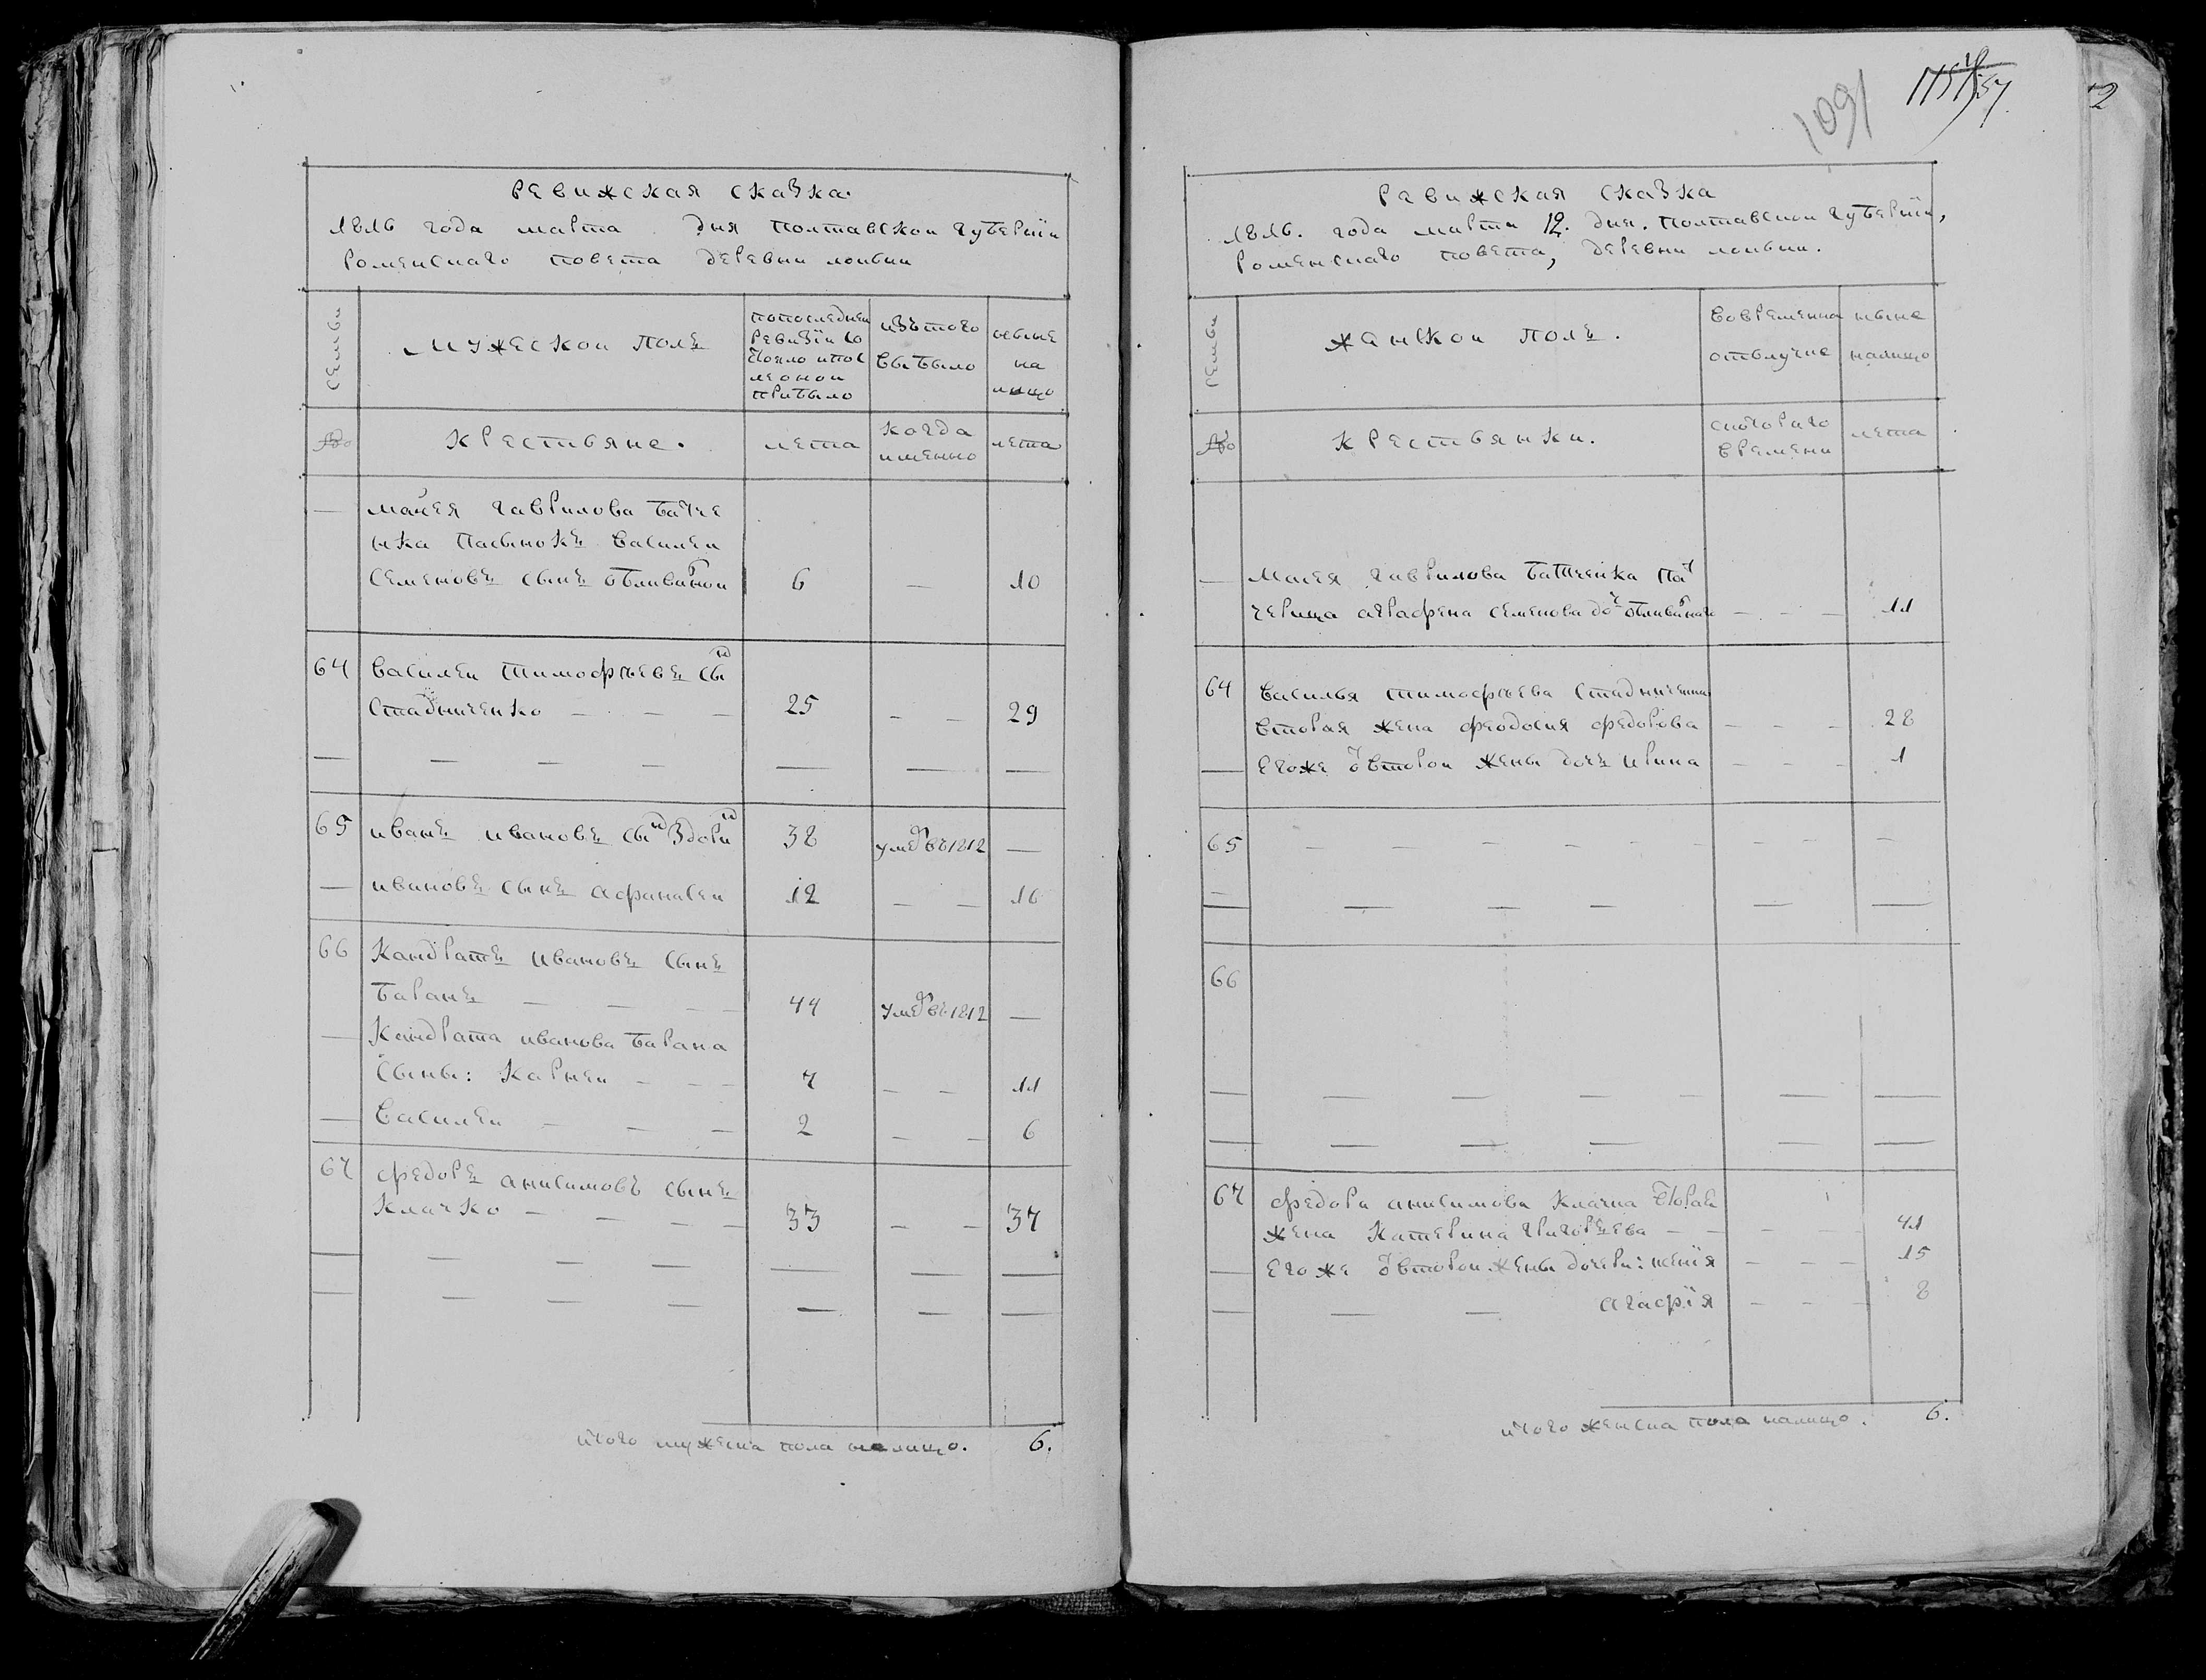 Ревижская сказка.
1816 года марта дня полтавской губернии
Роменскаго повета деревни
семьи
мужеской полъ
попоследней
ревизіи со
стояло ипос
ле оной
прибыло
изътого
выбыло
ныне
на
лицо
№
крестьяне.
лета
когда
именно
лета
— Гаврилова Батче
нка пасынокъ Василей
Семеновъ сынъ 6 — 10
64 Василей Тимофѣевъ сынъ
Стадниченко — — — 25 — — 29
— — — — — — —
65 иванъ ивановъ сынъ 38 умеръ въ 1812 —
— ивановъ сынъ Афанасей 12 — — 16
66 Кандратъ ивановъ сынъ
Баранъ — — — 44 умеръ въ 1812 —
— Кандрата иванова Барана
сыны: Карней — — 7 — — 11
— Василей — — — 2 — — 6
67 Федоръ анисимовъ сынъ
Клачко — — — — 33 — — 37
— — — — — — —
— — — — — — —
итого мужеска пола налицо. 6.
1091
2
Ревижская сказка
1816. года марта 12. дня. полтавской губерніи,
Роменскаго повета, деревни
семьи
жанской полъ.
вовременна
отълучке
ныне
налицо
№
крестьянки.
скоторого
времени
лета
— Гаврилова Батченка пад
черица аграфена Семенова доч — — — 11
64 Василья Тимофѣева Стадниченка
вторая жена феодосия федорова — — — 28
— Егоже отвторой жены дочъ Ирина — — — 1
65 — — — — — — — — —
—
— — — — — —
66
— — — — — — —
— — — — — —
67 Федора анисимова Клачка вторая
жена Катерина григорьева — — — — 41
— Егоже отвторой жены дочери: ксенія — — — 15
— — — агафія — — — 8
итого женска пола налицо. 6.